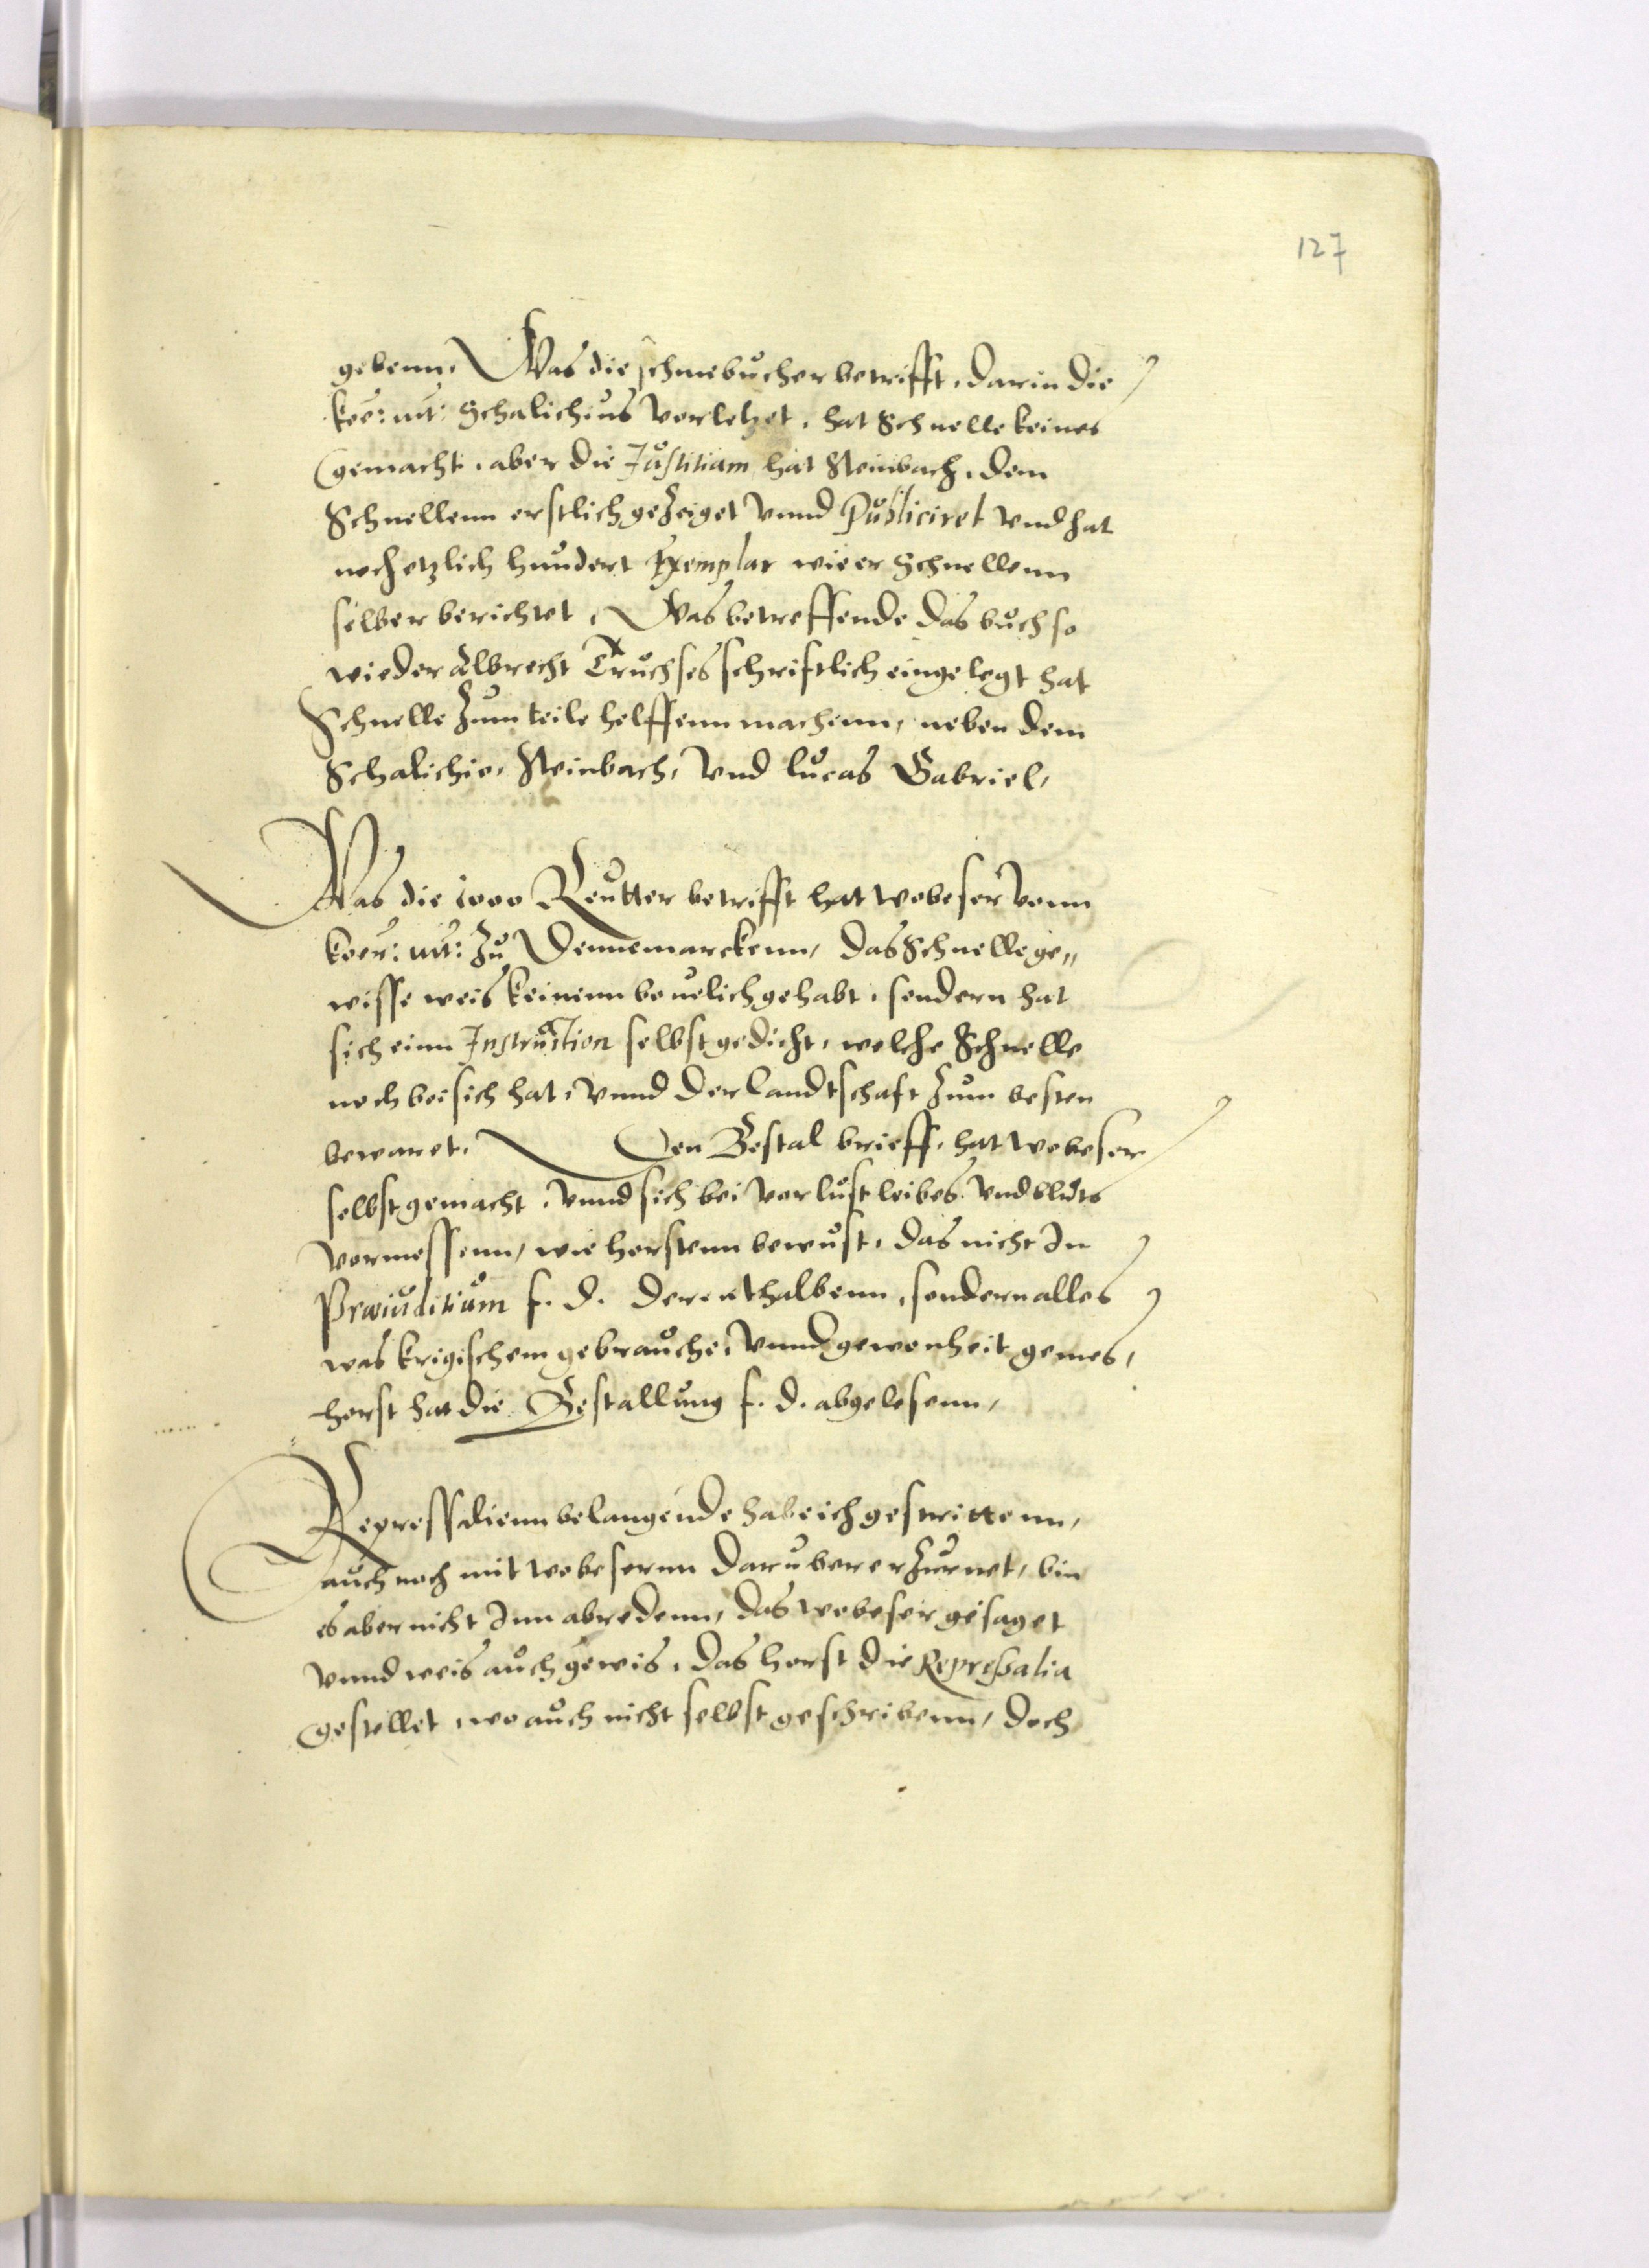 127
gebenn, Was die schmebucher betrifft, darin die
koe: mt: Schalichius vorletzet, hat Schnelle keines
gemacht, aber die Justitiam hat Steinbach, dem
Schnellenn erstlich gezeiget vnnd Publiciret vnd hat
noch etzlich hundert Exemplar wie er Schnellenn
selber berichtet, Was betreffende das buch so
wieder Albrecht Truchses schriftlich eingelegt hat
Schnelle zum teile helffenn machenn, neben dem
Schalichio, Steinbach, vnd lucas Gabriel,
Was die 1000 Reutter betrifft hat wobeser vonn
koer: mt: zu Dennemarckenn, das Schnelle ge„
wisse weis keinenn beuelich gehabt, sondern hat
sich einn Instruction selbst gedicht, welche Schnelle
noch bei sich hat, vnnd der landtschaft zum besten
bewaret, Den Bestal brieff, hat wobeser
selbst gemacht, vnnd sich bei vorlust leibes vnd bluts
vormessenn, wie horstenn bewust, das nicht In
Præiuditium f. d. derenthalbenn, sondern alles
was krigischem gebrauche, vnnd gewonheit gemes,
horst hat die Bestallung f. d. abgelesenn,
Repressalienn belangende habe ich gestrittenn,
auch noch mit wobesernn daruber erzurnet, bin
es aber nicht Inn abredenn, das wobeser gesaget
vnnd weis auch gewis, das horst die Repreßalia
gestellet, wo auch nicht selbst geschribenn, doch